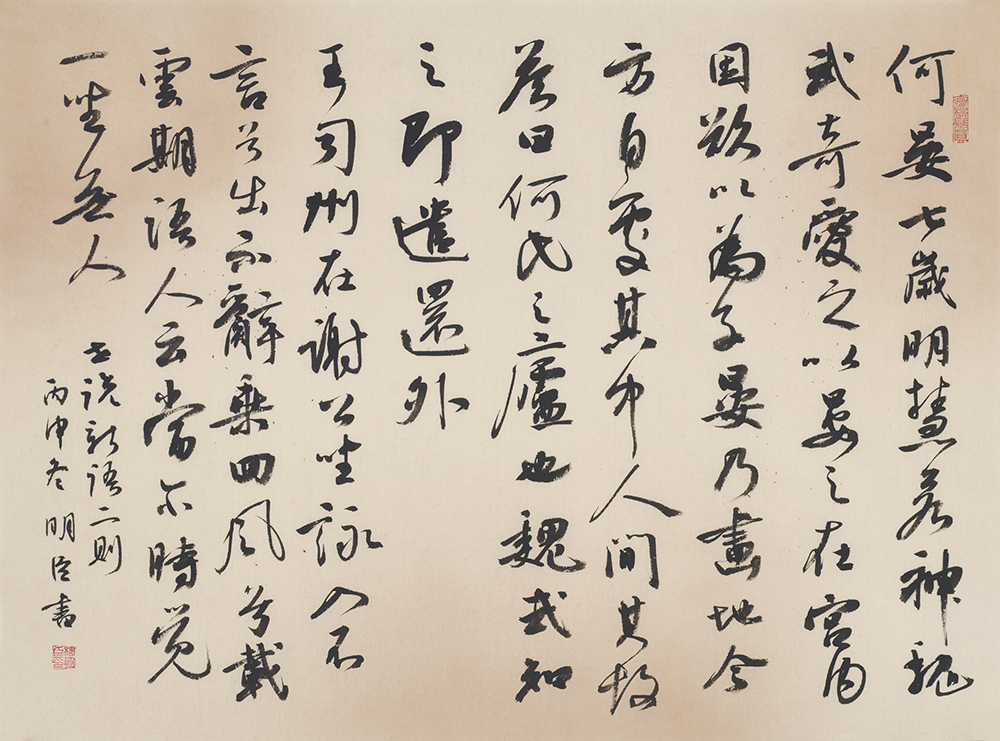 何晏七歲明慧若神魏
武奇愛之以晏之在宮內
因欲以為子晏乃畫地令
方自處其中人間其故
荅曰何氏之廬也魏武知
之即遣還外
王司州在謝公坐詠入不
言兮出不辭乘回風兮載
雲期語人云當尒時覺
一坐無人
世說新語二則
丙申冬明臣書